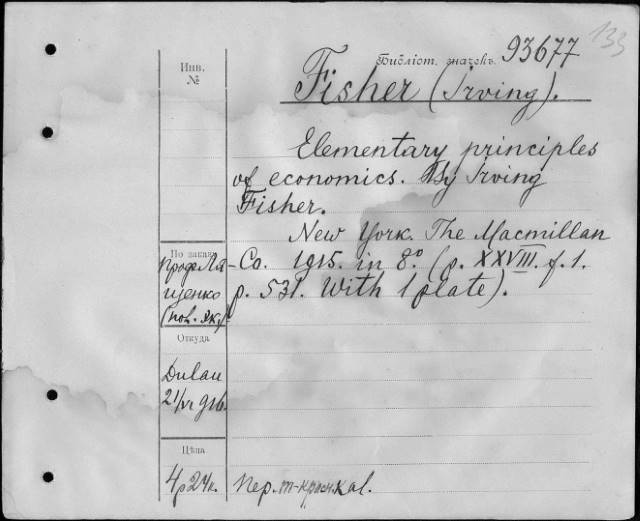 133
Библіот. значекъ. 93677
Инв.
№
Fisher (Irving).
Elementary principles
of economics. By Irving
Fisher.
New York. The Macmillan
Co. 1915. in 8.° (p. XXVIII. f. 1.
p. 531. With 1 plate).
По заказу
Проф. Ля-
щенко
Откуда
Dulau
21/VI 916.
Цѣна
4р24к.
Пер.